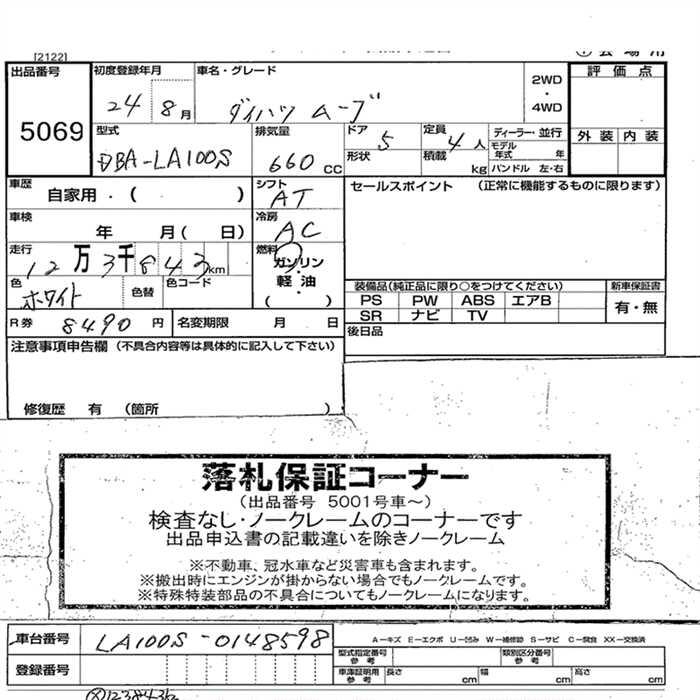 [2122]
出品番号 初度登録年月 車名・グレード
5069 24 8月 ダイハツ ムーブ 2WD・4WD 評価点
外装 内装
型式 排気量 ドア 5 定員 4人 ディーラー・並行
DBA-LA100S 660cc 形状 積載 kg モデル年式 年
ハンドル 左・右
車歴 自家用・( ) シフト AT セールスポイント (正常に機能するものに限ります)
車検 年 月( 日) 冷房 AC
走行 12万3千843km 燃料 ガソリン・軽油・( )
色 ホワイト 色替 色コード
装備品(純正品に限り○をつけてください) 新車保証書
PS PW ABS エアB 有・無
SR ナビ TV
R券 8490円 名変期限 月 日
後日品
注意事項申告欄 (不具合内容等は具体的に記入して下さい)
修復歴 有 (箇所 )
落札保証コーナー
(出品番号 5001号車～)
検査なし・ノークレームのコーナーです
出品申込書の記載違いを除きノークレーム
※不動車、冠水車など災害車も含まれます。
※搬出時にエンジンが掛からない場合でもノークレームです。
※特殊特装部品の不具合についてもノークレームになります。
車台番号 LA100S-0148598
A-キズ E-エクボ U-凹み W-補修跡 S-サビ C-腐食 XX-交換済
型式指定番号 参考 類別区分番号 参考
登録番号
車庫証明用 参考 長さ cm 幅 cm 高さ cm